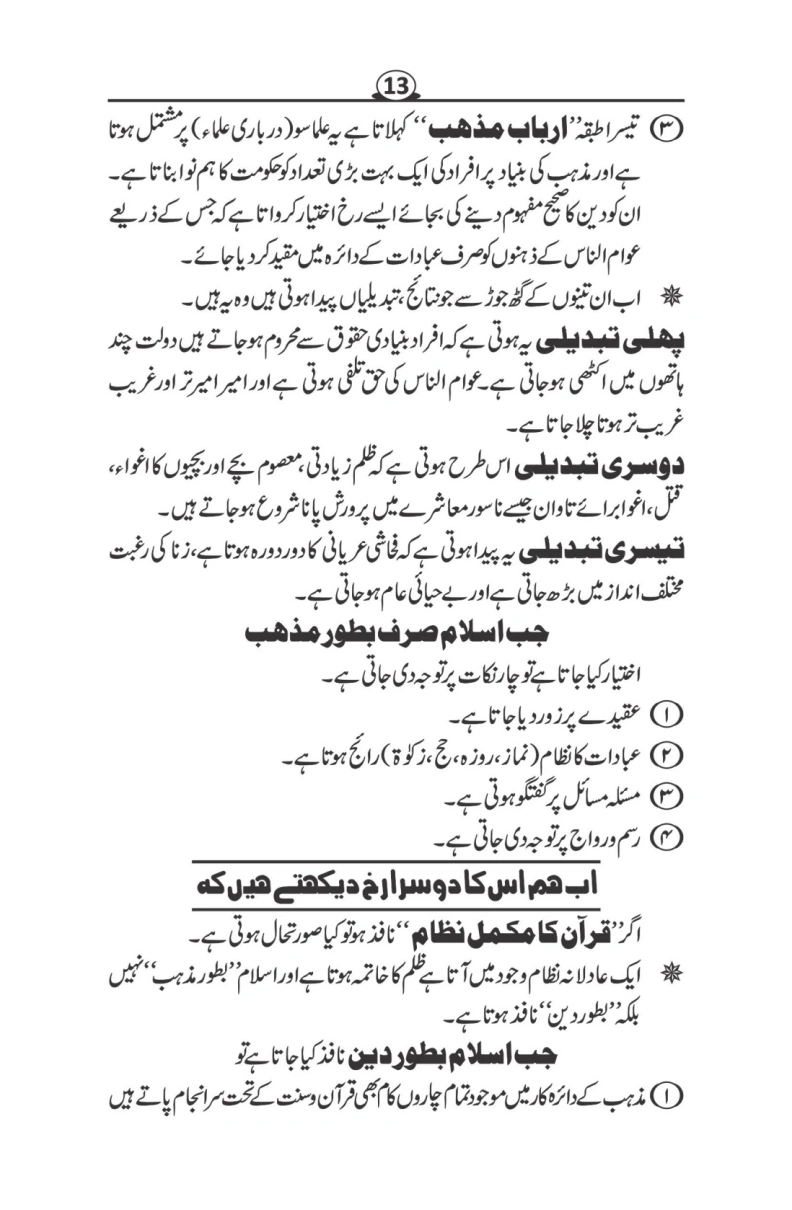 13
③ تیسرا طبقہ ’’ارباب مذہب‘‘ کہلاتا ہے یہ علماسو (درباری علماء) پر مشتمل ہوتا
ہے اور مذہب کی بنیاد پر افراد کی ایک بہت بڑی تعداد کو حکومت کا ہم نوا بناتا ہے۔
ان کو دین کا صحیح مفہوم دینے کی بجائے ایسے رخ اختیار کرواتا ہے کہ جس کے ذریعے
عوام الناس کے ذہنوں کو صرف عبادات کے دائرہ میں مقید کر دیا جائے۔
✵ اب ان تینوں کے گٹھ جوڑ سے جو نتائج، تبدیلیاں پیدا ہوتی ہیں وہ یہ ہیں۔
پہلی تبدیلی یہ ہوتی ہے کہ افراد بنیادی حقوق سے محروم ہو جاتے ہیں دولت چند
ہاتھوں میں اکٹھی ہو جاتی ہے۔ عوام الناس کی حق تلفی ہوتی ہے اور امیر امیر تر اور غریب
غریب تر ہوتا چلا جاتا ہے۔
دوسری تبدیلی اس طرح ہوتی ہے کہ ظلم زیادتی، معصوم بچے اور بچیوں کا اغواء،
قتل، اغوا برائے تاوان جیسے ناسور معاشرے میں پرورش پانا شروع ہو جاتے ہیں۔
تیسری تبدیلی یہ پیدا ہوتی ہے کہ فحاشی عریانی کا دور دورہ ہوتا ہے، زنا کی رغبت
مختلف انداز میں بڑھ جاتی ہے اور بے حیائی عام ہو جاتی ہے۔
جب اسلام صرف بطور مذہب
اختیار کیا جاتا ہے تو چار نکات پر توجہ دی جاتی ہے۔
① عقیدے پر زور دیا جاتا ہے۔
② عبادات کا نظام (نماز، روزہ، حج، زکوٰۃ) رائج ہوتا ہے۔
③ مسئلہ مسائل پر گفتگو ہوتی ہے۔
④ رسم و رواج پر توجہ دی جاتی ہے۔
اب ہم اس کا دوسرا رخ دیکھتے ہیں کہ
اگر ’’قرآن کا مکمل نظام‘‘ نافذ ہو تو کیا صورتحال ہوتی ہے۔
✵ ایک عادلانہ نظام وجود میں آتا ہے ظلم کا خاتمہ ہوتا ہے اور اسلام ’’بطور مذہب‘‘ نہیں
بلکہ ’’بطور دین‘‘ نافذ ہوتا ہے۔
جب اسلام بطور دین نافذ کیا جاتا ہے تو
① مذہب کے دائرہ کار میں موجود تمام چاروں کام بھی قرآن و سنت کے تحت سرانجام پاتے ہیں